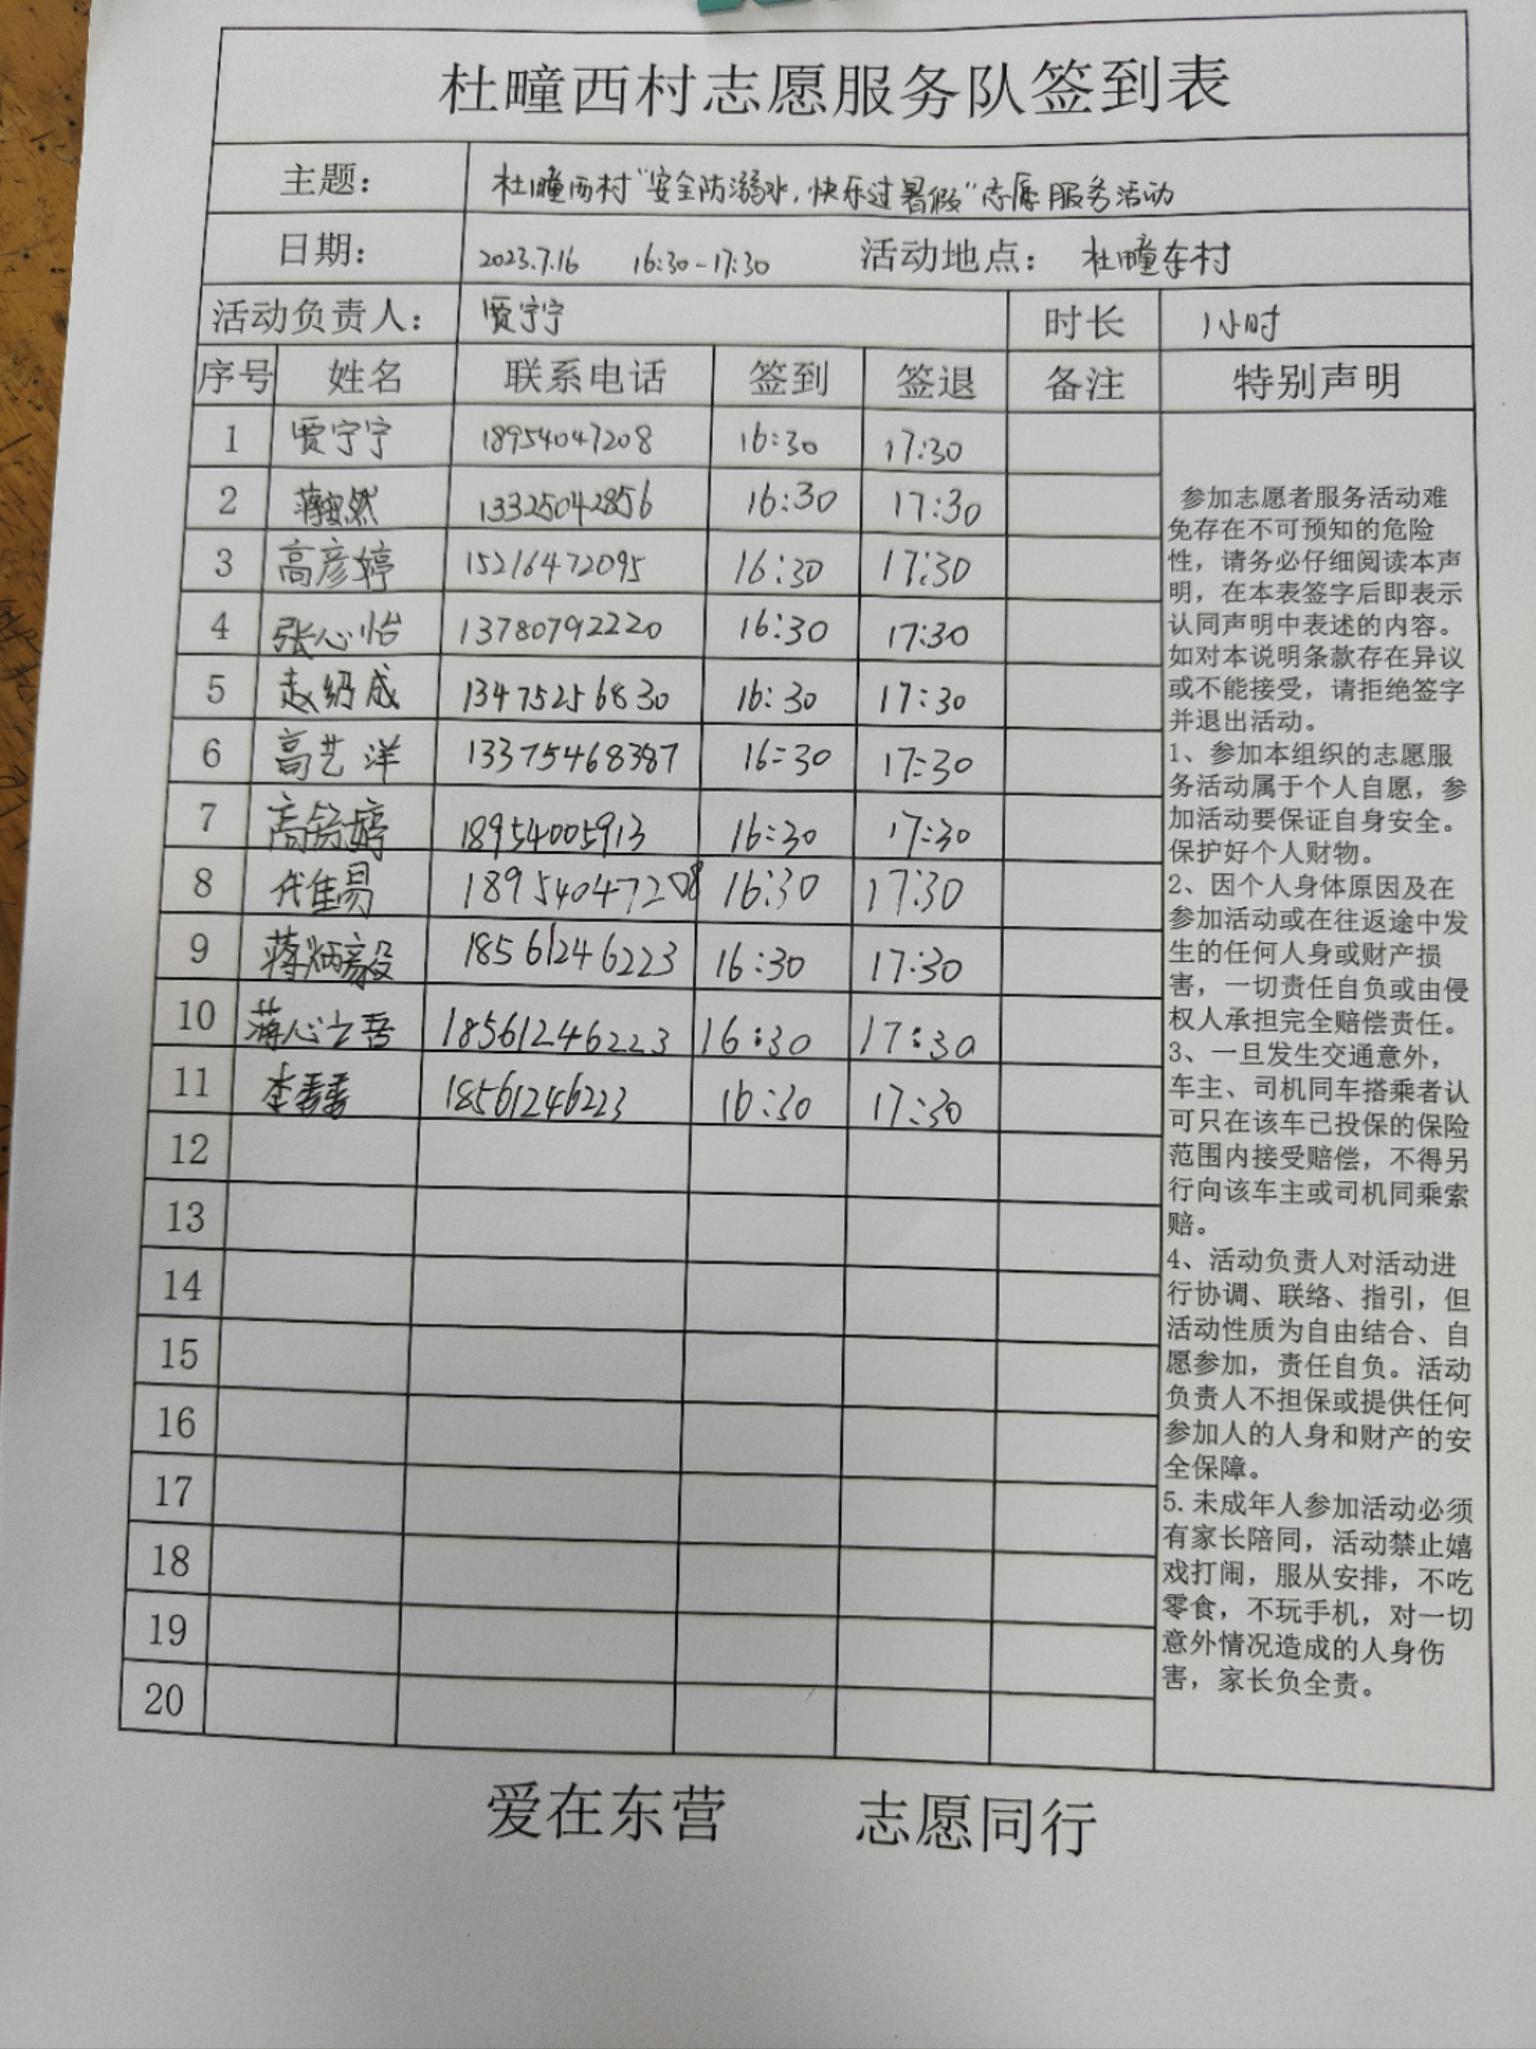 杜疃西村志愿服务队签到表
主题： 杜疃西村“安全防溺水，快乐过暑假”志愿服务活动
日期： 2023.7.16 16:30-17:30 活动地点： 杜疃东村
活动负责人： 贾宁宁 时长 1小时
序号 姓名 联系电话 签到 签退 备注 特别声明
1 贾宁宁 18954047208 16:30 17:30
2 蒋安然 13325042856 16:30 17:30
3 高彦婷 15216472095 16:30 17:30
4 张心怡 13780792220 16:30 17:30
5 赵绍成 13475256830 16:30 17:30
6 高艺洋 13375468387 16:30 17:30
7 高舒婷 18954005913 16:30 17:30
8 代佳易 18954047208 16:30 17:30
9 蒋炳毅 18561246223 16:30 17:30
10 蒋心之吾 18561246223 16:30 17:30
11 李 18561246223 16:30 17:30
12
13
14
15
16
17
18
19
20
参加志愿者服务活动难
免存在不可预知的危险
性，请务必仔细阅读本声
明，在本表签字后即表示
认同声明中表述的内容。
如对本说明条款存在异议
或不能接受，请拒绝签字
并退出活动。
1、参加本组织的志愿服
务活动属于个人自愿，参
加活动要保证自身安全。
保护好个人财物。
2、因个人身体原因及在
参加活动或在往返途中发
生的任何人身或财产损
害，一切责任自负或由侵
权人承担完全赔偿责任。
3、一旦发生交通意外，
车主、司机同车搭乘者认
可只在该车已投保的保险
范围内接受赔偿，不得另
行向该车主或司机同乘索
赔。
4、活动负责人对活动进
行协调、联络、指引，但
活动性质为自由结合、自
愿参加，责任自负。活动
负责人不担保或提供任何
参加人的人身和财产的安
全保障。
5.未成年人参加活动必须
有家长陪同，活动禁止嬉
戏打闹，服从安排，不吃
零食，不玩手机，对一切
意外情况造成的人身伤
害，家长负全责。
爱在东营 志愿同行